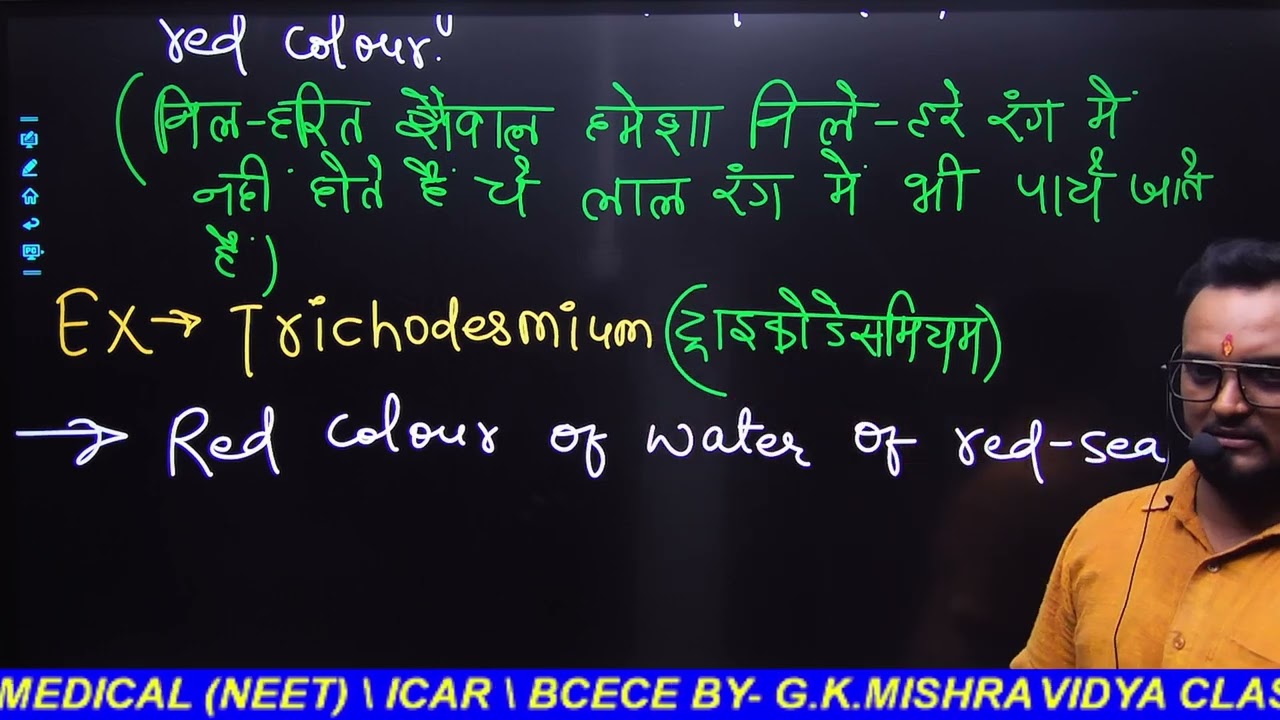 red colour.
(निल-हरित शैवाल हमेशा निले-हरे रंग में
नहीं होते हैं ये लाल रंग में भी पाये जाते
हैं)
Ex→ Trichodesmium (ट्राइकोडेसमियम)
→ Red colour of water of red-sea
MEDICAL (NEET) \ ICAR \ BCECE BY- G.K.MISHRA VIDYA CLAS